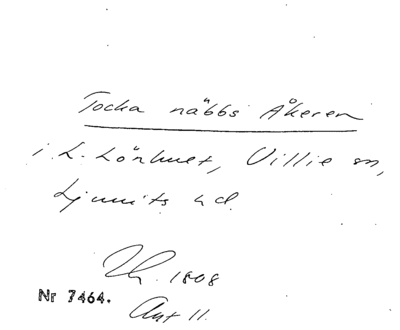 Tocka näbbs Åkeren
i L. Lönhult, Villie sn,
Ljunits hd.
Uh. 1808
Nr 7464.
Akt 11.